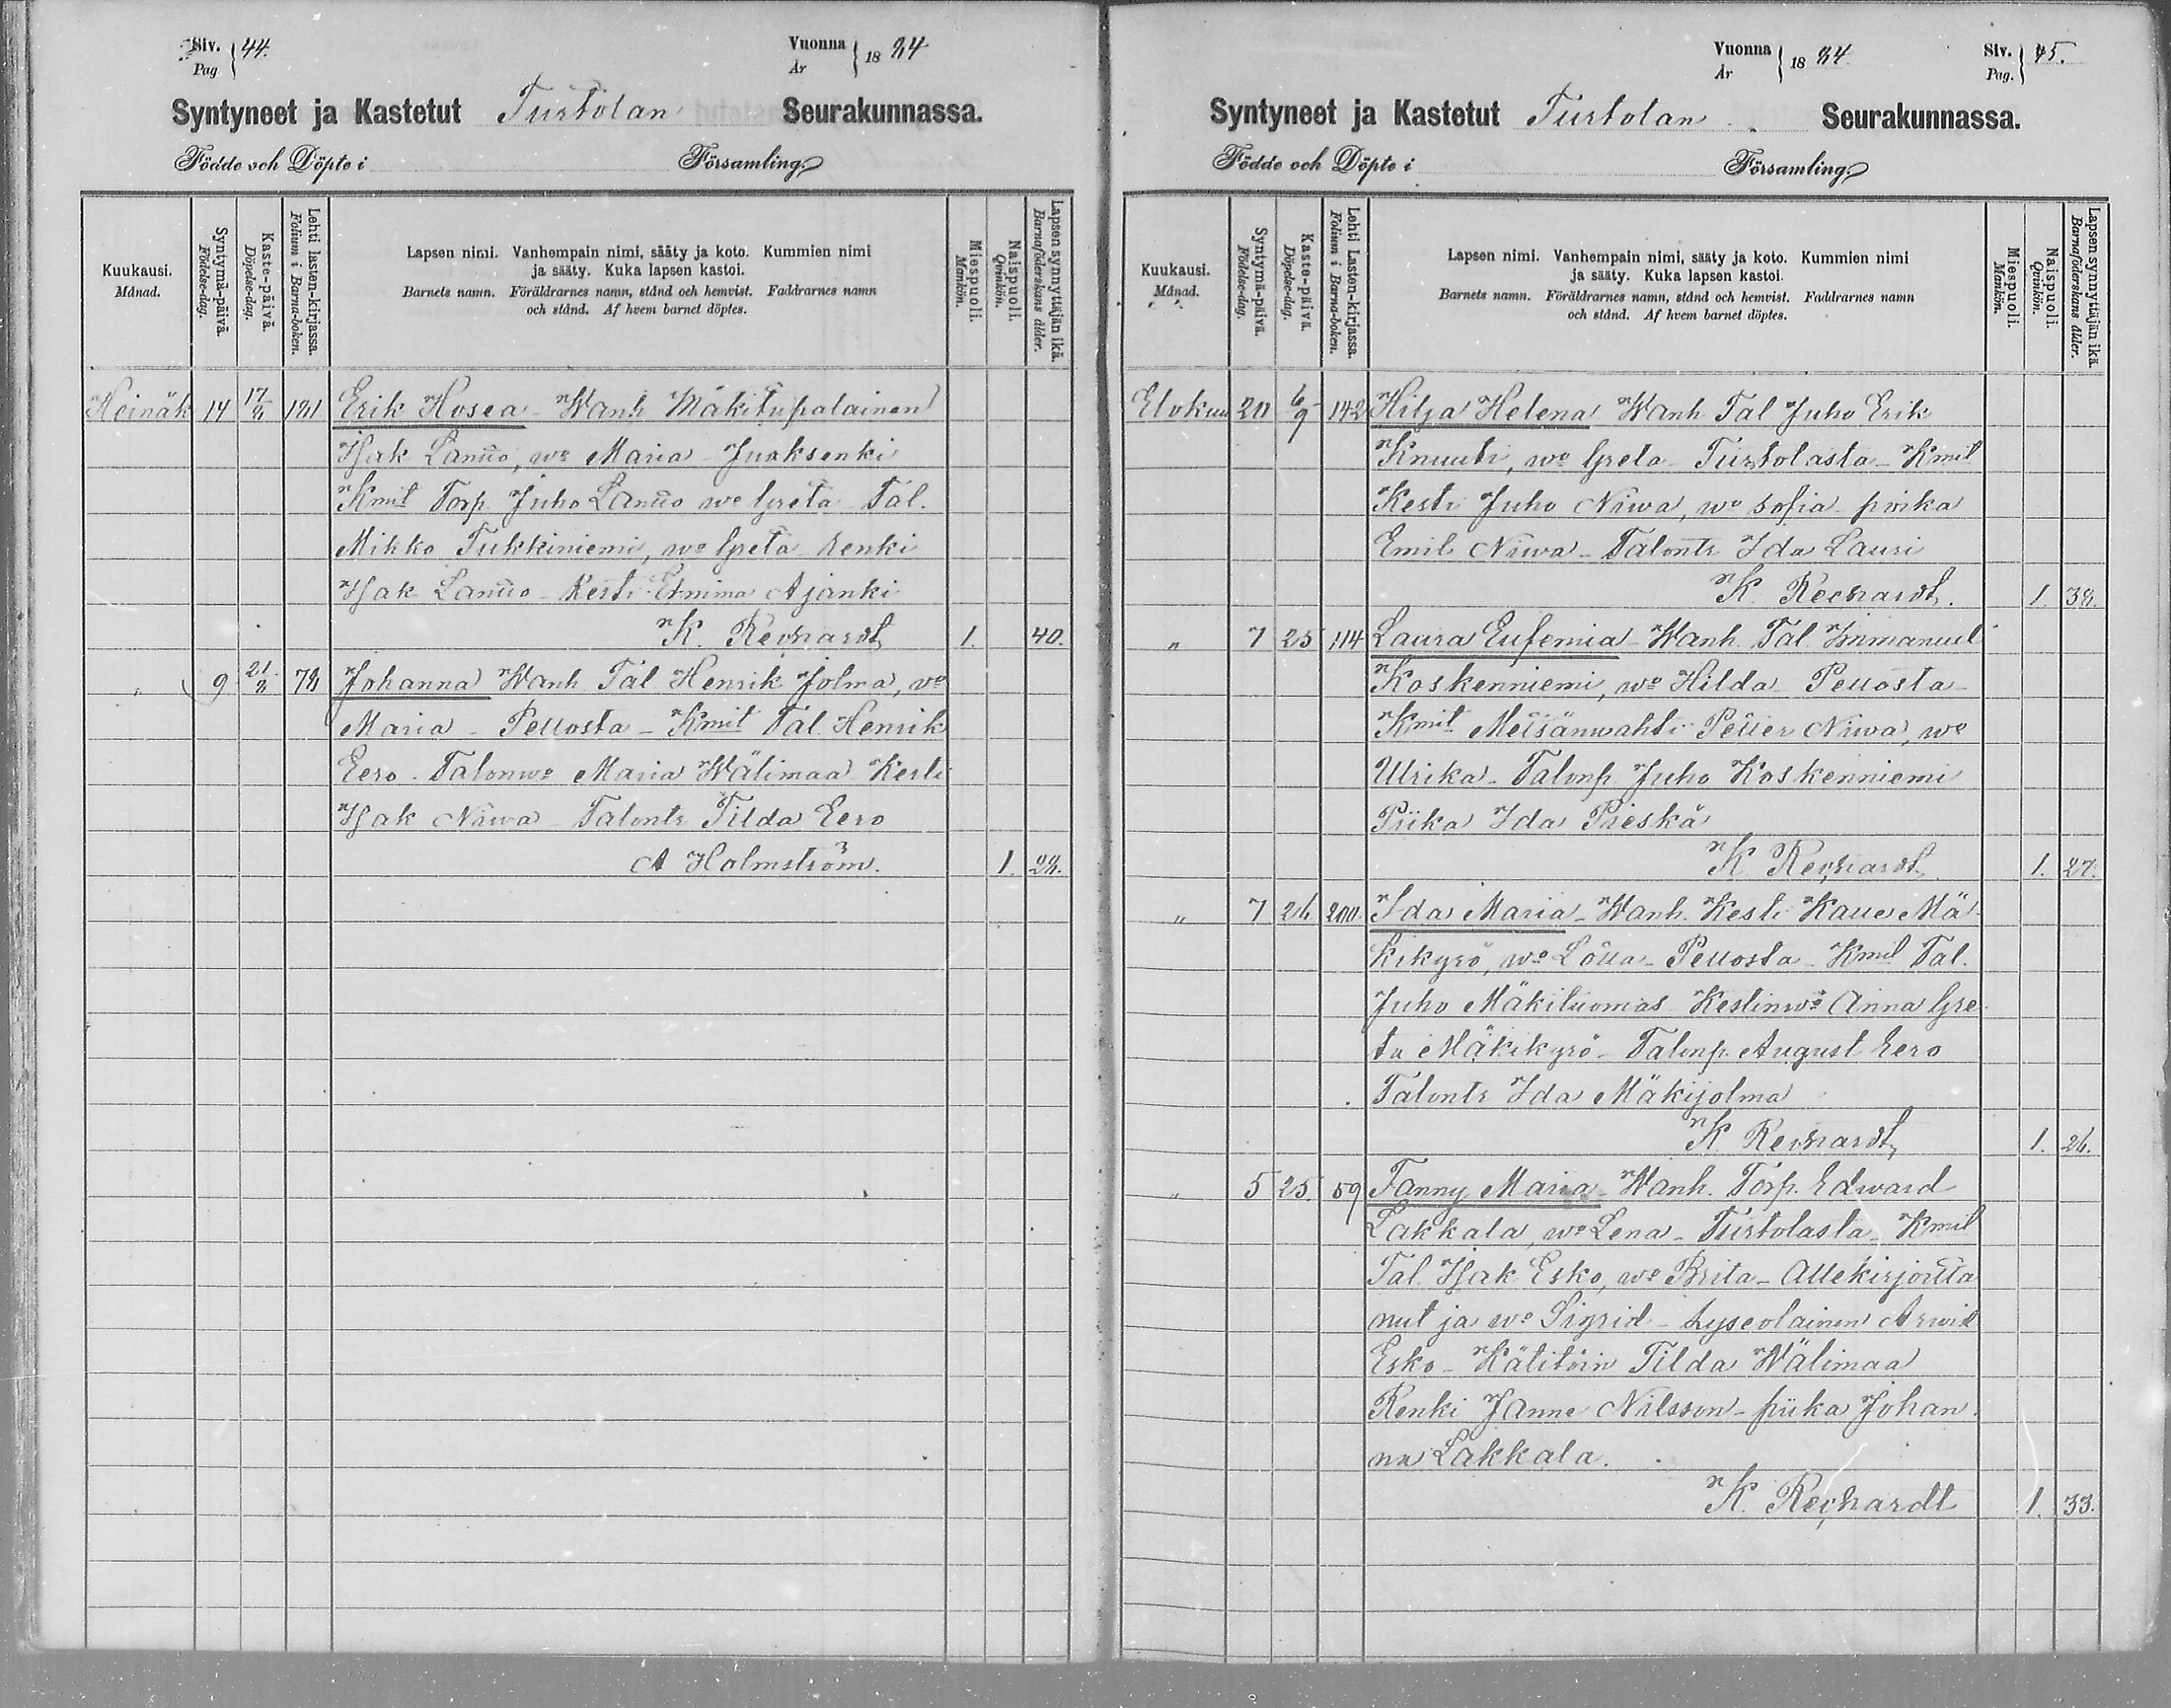 Siv. Pag. 44.
Vuonna År 1884
Syntyneet ja Kastetut Turtolan Seurakunnassa.
Födde och Döpte i Församling
Kuukausi. Månad.
Syntymä-päivä. Födelse-dag.
Kaste-päivä. Döpelse-dag.
Lehti lasten-kirjassa. Folium i Barna-boken.
Lapsen nimi. Vanhempain nimi, sääty ja koto. Kummien nimi
ja sääty. Kuka lapsen kastoi.
Barnets namn. Föräldrarnes namn, stånd och hemvist. Faddrarnes namn
och stånd. Af hvem barnet döptes.
Miespuoli. Mankön.
Naispuoli. Qvinkön.
Lapsen synnyttäjän ikä. Barnaföderskans ålder.
Heinäk 14 17/8 181 Erik Hosea - Wanh Mäkitupalainen
Isak Lantto, wo Maria - Juoksenki
Kmit Torp Juho Lantto wo Greta Tal.
Mikko Tukkiniemi, wo Greta renki
Isak Lantto - Kesti Emma Ajanki
K. Rechardt 1. 40.
" 9 21/8 78 Johanna Wanh Tal Henrik Jolma, wo
Maria - Pellosta - Kmit Tal. Henrik
Eero - Talonwo Maria Wälimaa Kesti
Isak Niwa - Talontr Tilda Eero
A Holmström. 1. 28.
Vuonna År 1884.
Siv. Pag. 45.
Syntyneet ja Kastetut Turtolan Seurakunnassa.
Födde och Döpte i Församling
Kuukausi. Månad.
Syntymä-päivä. Födelse-dag.
Kaste-päivä. Döpelse-dag.
Lehti Lasten-kirjassa. Folium i Barna-boken.
Lapsen nimi. Vanhempain nimi, sääty ja koto. Kummien nimi
ja sääty. Kuka lapsen kastoi.
Barnets namn. Föräldrarnes namn, stånd och hemvist. Faddrarnes namn
och stånd. Af hvem barnet döptes.
Miespuoli. Mankön.
Naispuoli. Qvinkön.
Lapsen synnyttäjän ikä. Barnaföderskans ålder.
Elokuu 20 6/9 142 Hilja Helena Wanh Tal Juho Erik
Knuuti, wo Greta - Turtolasta - Kmit
Kesti Juho Niwa, wo Sofia - poika
Emil Niwa - Talontr Ida Lauri
K. Rechardt. 1. 38.
" 7 25 114 Laura Eufemia - Wanh. Tal. Immanuel
Koskenniemi, wo Hilda - Pellosta -
Kmit Metsänwahti Petter Niwa, wo
Ulrika - Talonp Juho Koskenniemi
Piika Ida Pieskä
K Rechardt 1. 27.
" 7 26 200 Ida Maria - Wanh. Kesti Kalle Mä-
kikyrö, wo Lotta - Pellosta - Kmit Tal.
Juho Mäkituomas - Kestinwo Anna Gre-
ta Mäkikyrö - Talonp. August Eero
Talontr Ida Mäkijolma
K Rechardt 1. 26.
" 5 25. 59 Fanny Maria - Wanh. Torp. Edward
Lakkala, wo Lena - Turtolasta Kmit
Tal. Isak Esko, wo Brita - Allekirjoitta
nut ja wo Sigrid - Lyseolainen Arwid
Esko - Kätilön Tilda Wälimaa
Renki Janne Nilsson - piika Johan
na Lakkala.
K. Rechardt 1. 33.